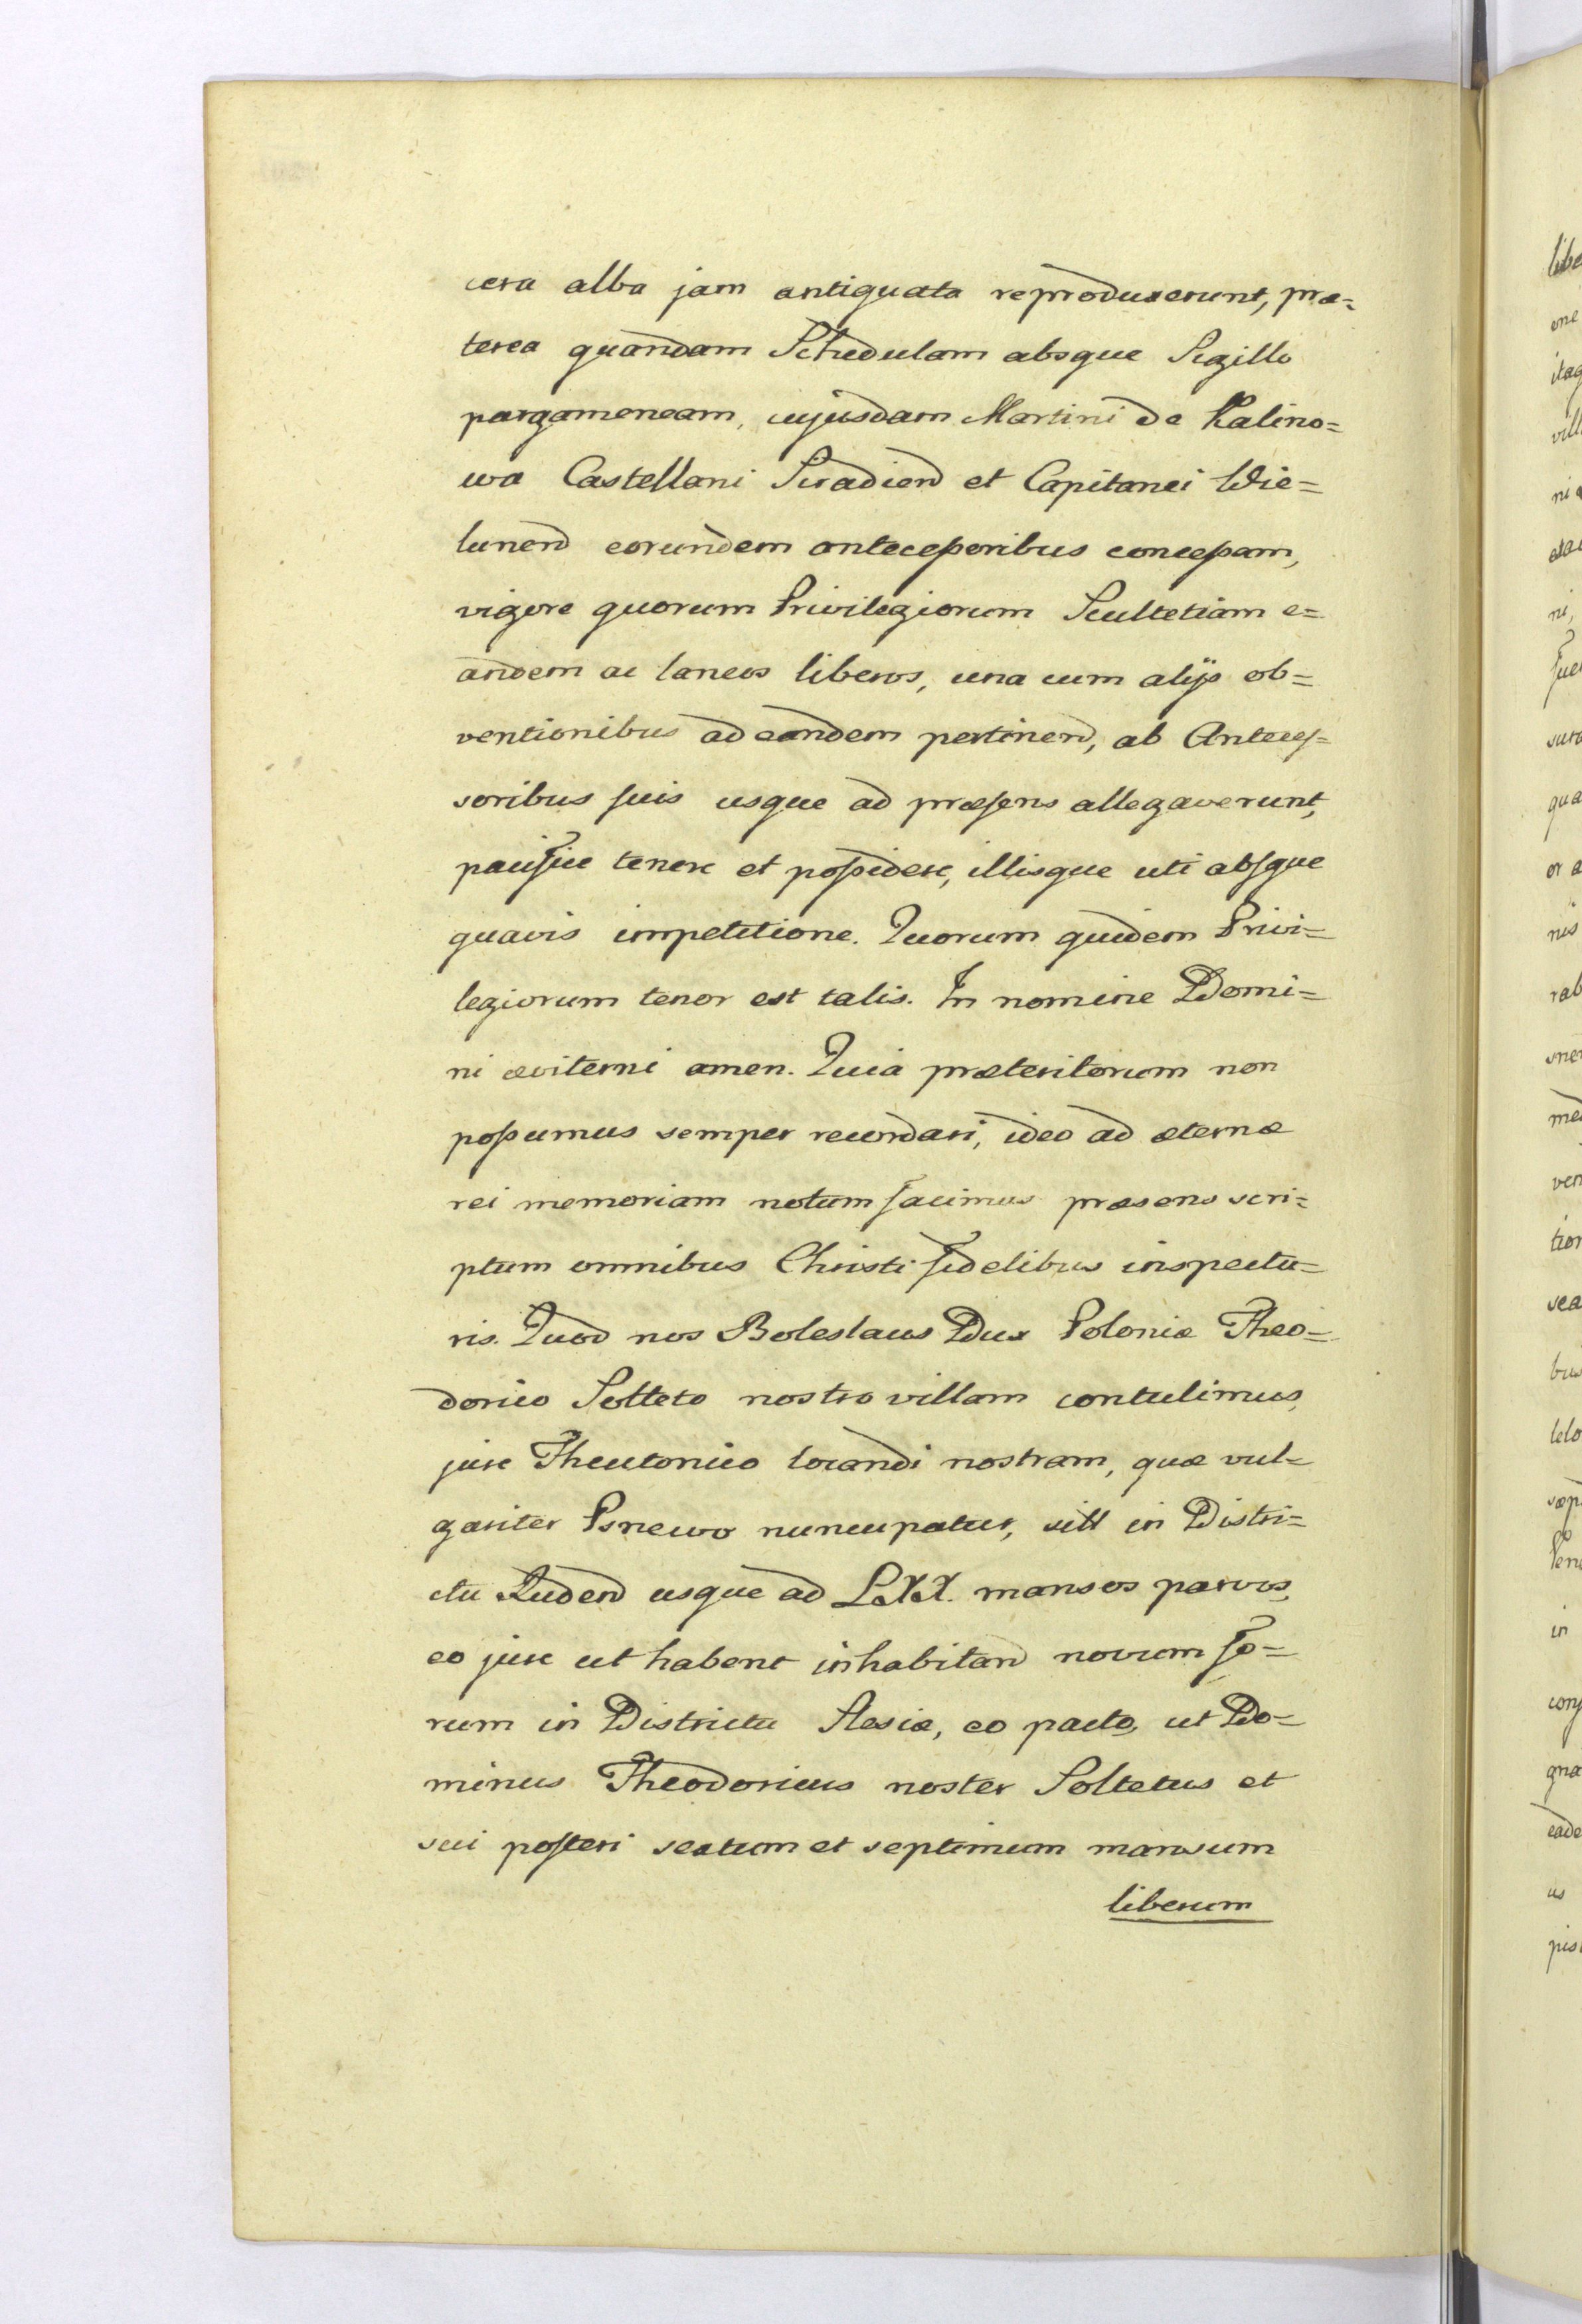 cera alba jam antiquata reproduxerunt, præ=
terea quandam Schedulam absque Sigillo
pargameneam, cujusdam Martini de Kalino=
wa Castellani Siradien et Capitanei Wie=
lunen eorundem antecessoribus concessam,
vigore quorum Privilegiorum Scultetiam e=
andem ac laneos liberos, una cum alijs ob=
ventionibus ad eandem pertinen, ab Anteces=
soribus suis usque ad præsens allegaverunt,
pacifice tenere et possidere, illisque uti absque
quavis impetitione. Quorum quidem Privi=
legiorum tenor est talis. In nomine Domi=
ni æviterni amen. Quia præteritorum non
possumus semper recordari, ideo ad æternæ
rei memoriam notum facimus præsens scri=
ptum omnibus Christi fidelibus inspectu=
ris. Quod nos Boleslaus Dux Poloniæ Theo=
dorico Solteto nostro villam contulimus,
jure Theutonico locandi nostram, quæ vul=
gariter Psnewo nuncupatur, sitt in Distri=
ctu Ruden usque ad LXX. mansos parvos,
eo jure ut habent inhabitan novum fo=
rum in Districtu Slesiæ, eo pacto, ut Do=
minus Theodoricus noster Soltetus et
sui posteri sextum et septimum mansum
liberum